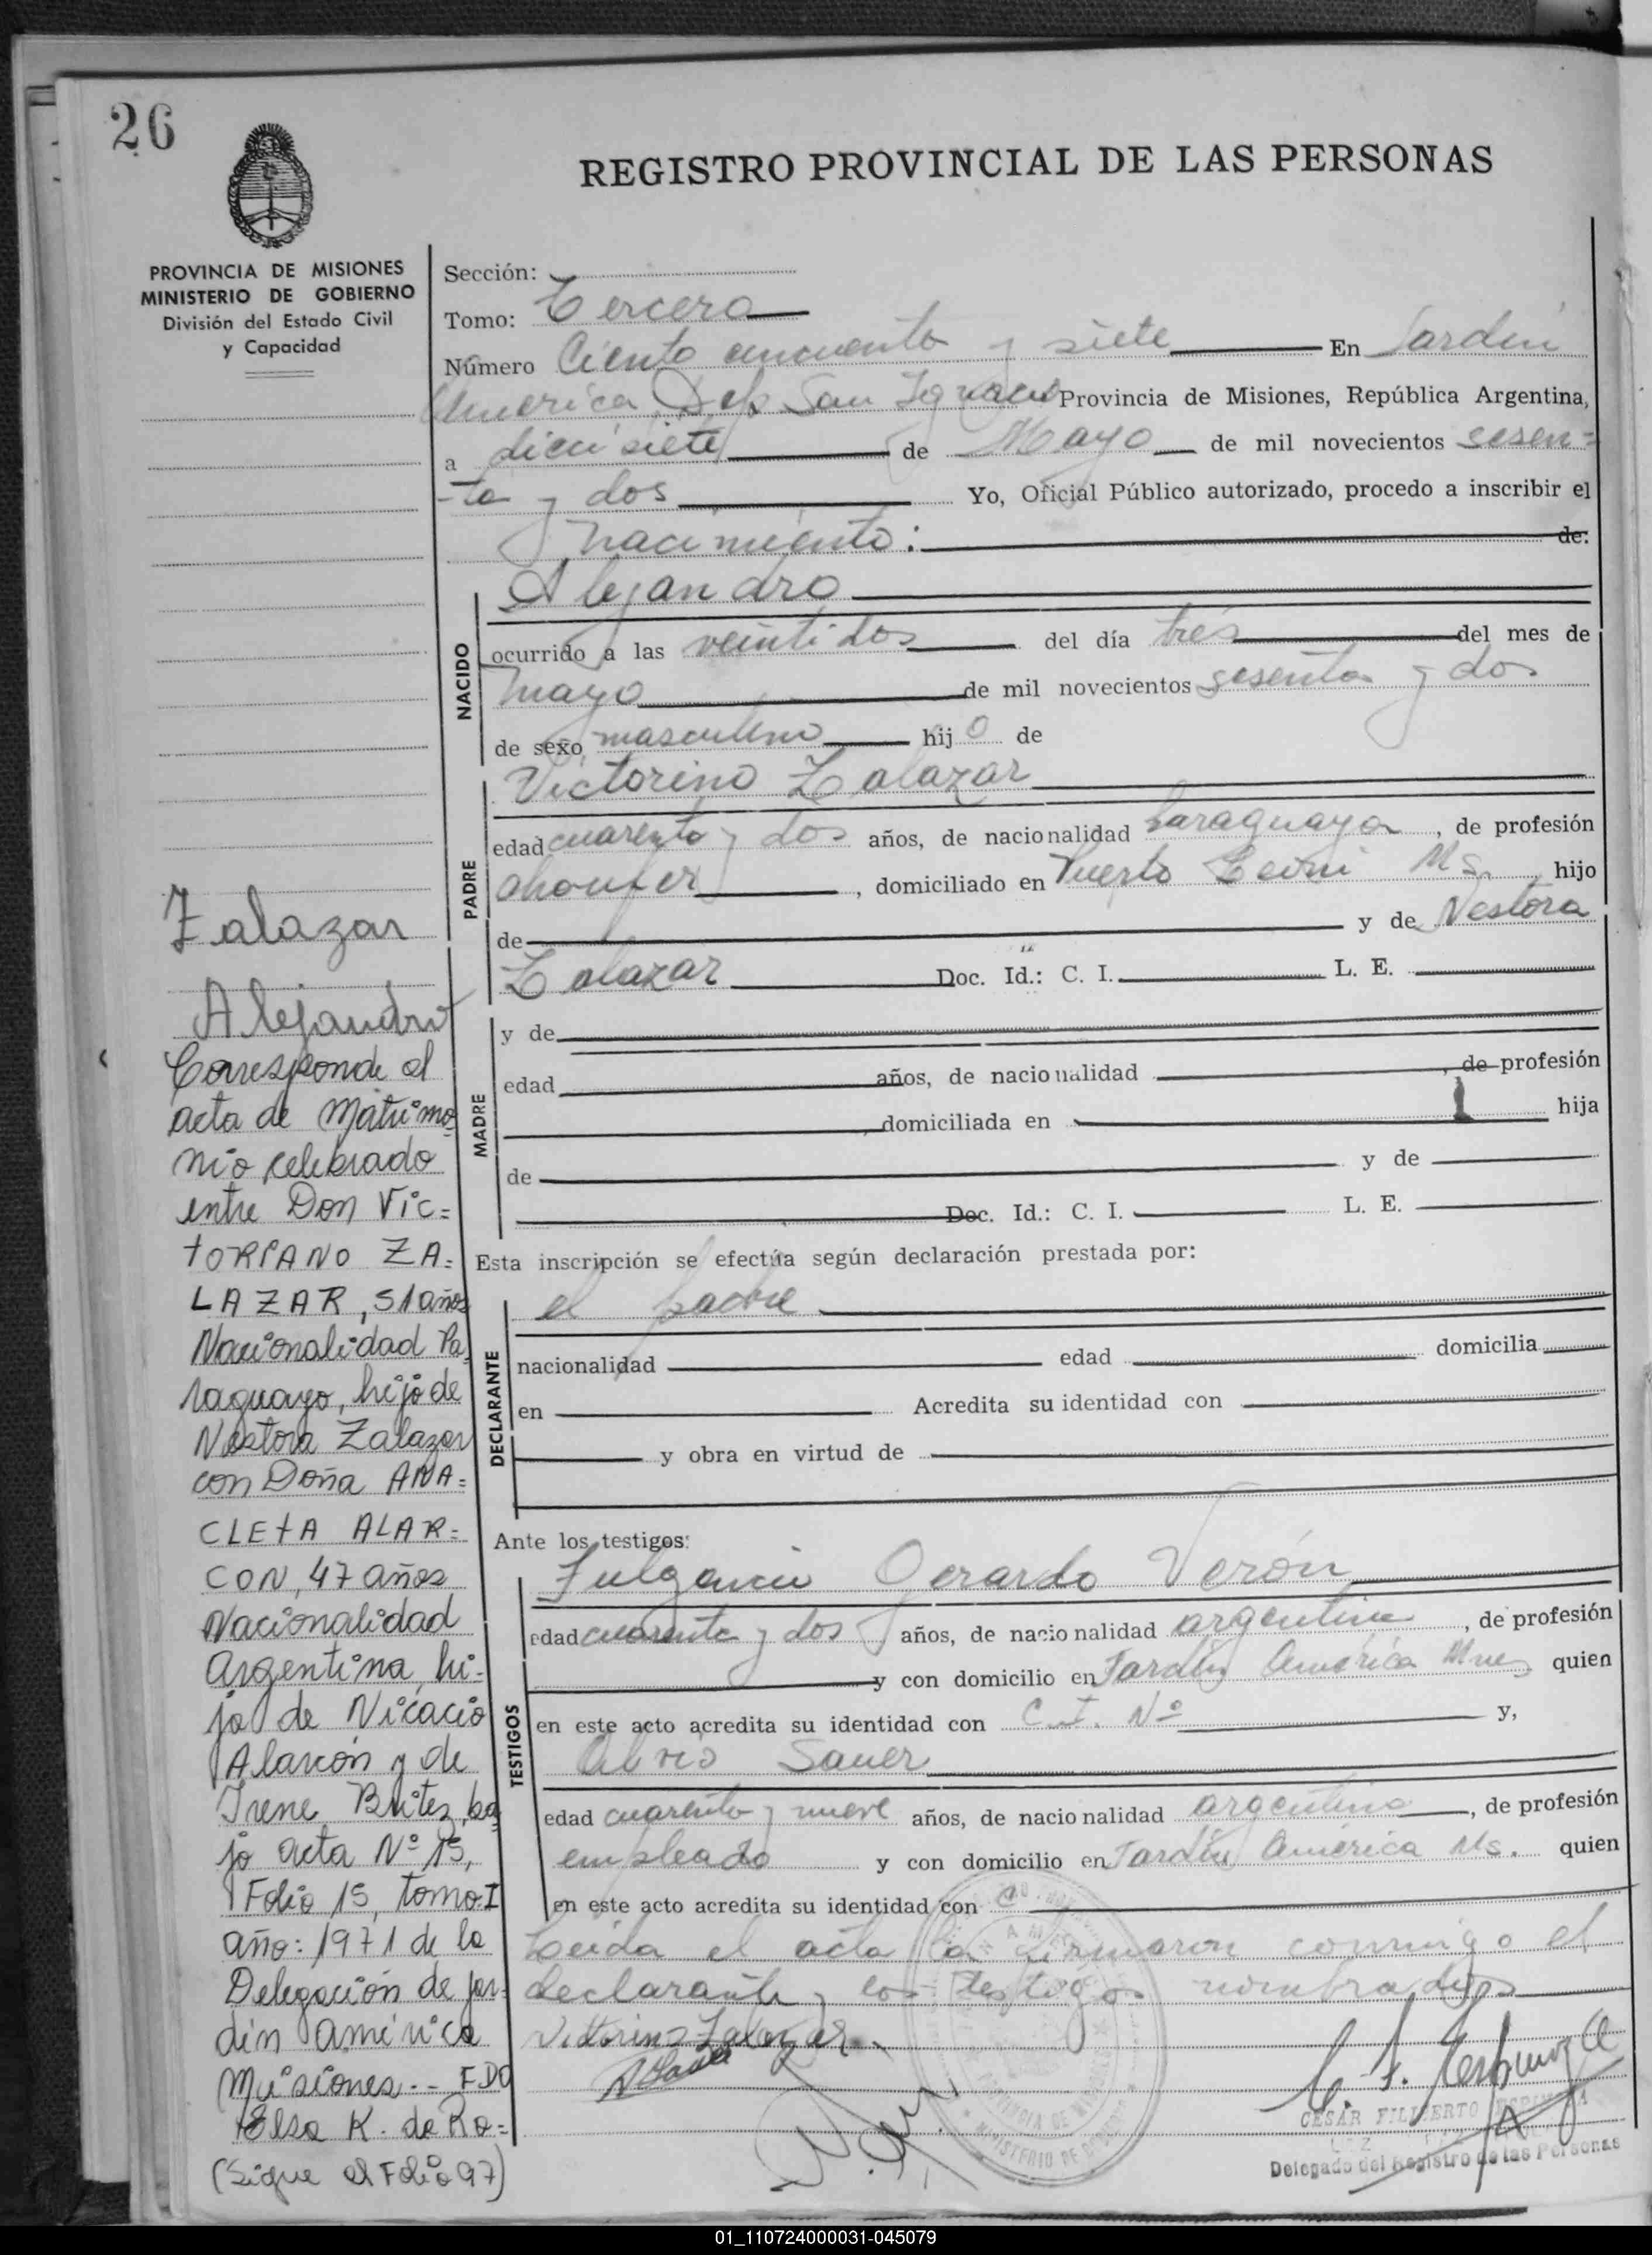 26
REGISTRO PROVINCIAL DE LAS PERSONAS
PROVINCIA DE MISIONES
MINISTERIO DE GOBIERNO
División del Estado Civil
y Capacidad
Sección:
Tomo: Tercero
Número Ciento cincuenta y siete En Jardín
America, Dep. San Ignacio Provincia de Misiones, República Argentina,
a diecisiete de Mayo de mil novecientos sesen=
-ta y dos Yo, Oficial Público autorizado, procedo a inscribir el
nacimiento: de:
NACIDO
Alejandro
ocurrido a las veintidos del día tres del mes de
mayo de mil novecientos sesenta y dos
de sexo masculino hijo de
PADRE
Victorino Zalazar
edad cuarenta y dos años, de nacionalidad paraguaya, de profesión
choufer, domiciliado en Puerto Leoni Ms. hijo
de y de Nestora
Zalazar Doc. Id.: C. I. L. E.
MADRE
y de
edad años, de nacionalidad , de profesión
, domiciliada en hija
de y de
Doc. Id.: C. I. L. E.
Esta inscripción se efectúa según declaración prestada por:
DECLARANTE
el padre
nacionalidad edad domicilia
en Acredita su identidad con
y obra en virtud de
Ante los testigos:
TESTIGOS
Fulgencio Gerardo Verón
edad cuarenta y dos años, de nacionalidad argentina, de profesión
y con domicilio en Jardín América Mnes quien
en este acto acredita su identidad con C.I. Nº y,
Sauer
edad cuarenta y nueve años, de nacionalidad argentina, de profesión
empleado y con domicilio en Jardín América Ms. quien
en este acto acredita su identidad con C
Leida el acta la firmaron conmigo el
declarante y los testigos nombrados
Victorino Zalazar
CESAR FILIBERTO ESPINOZA
Delegado del Registro de las Personas
Zalazar
Alejandro
Corresponde al
acta de Matrimo
nio celebrado
entre Don Vic=
TORIANO ZA=
LAZAR, 51 años
Nacionalidad Pa
raguayo, hijo de
Nestora Zalazar
con Doña ANA=
CLETA ALAR=
CON, 47 años
Nacionalidad
Argentina, hi=
ja de Nicacio
Alarcón y de
Irene Britez, ba
jo acta Nº 15,
Folio 15, tomo I
año: 1971 de la
Delegación de Jar=
din América
Misiones.- FDO
Elsa K. de Ro=
(Sigue al Folio 97)
01_110724000031-045079